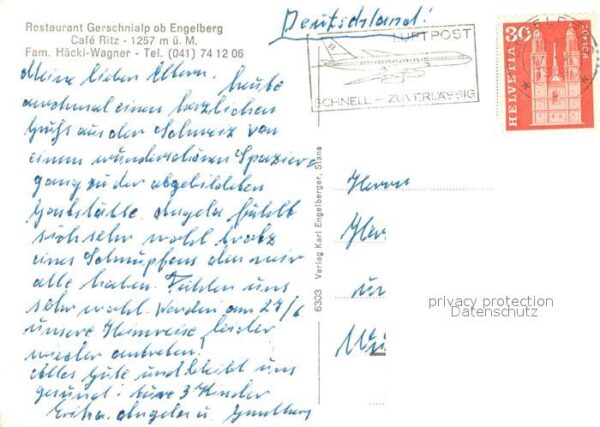 Restaurant Gerschnialp ob Engelberg
Café Ritz - 1257 m ü. M.
Fam. Häcki-Wagner - Tel. (041) 74 12 06
Deutschland!
LUFTPOST
SCHNELL - ZUVERLÄSSIG
30
HELVETIA
Meine lieben Eltern. heute
nochmal einen herzlichen
Gruß aus der Schweiz von
einem wunderschönen Spazier-
gang zu der abgebildeten
Gaststätte. Angela fühlt
sich sehr wohl trotz
eines Schnupfens den wir
alle haben. Fühlen uns
sehr wohl. Werden am 27/6
unsere Heimreise leider
wieder antreten!
Alles Gute und bleibt uns
gesund! Eure 3 Kinder
Erika. Angela u.
6303 Verlag Karl Engelberger, Stans
Herrn
privacy protection
Datenschutz